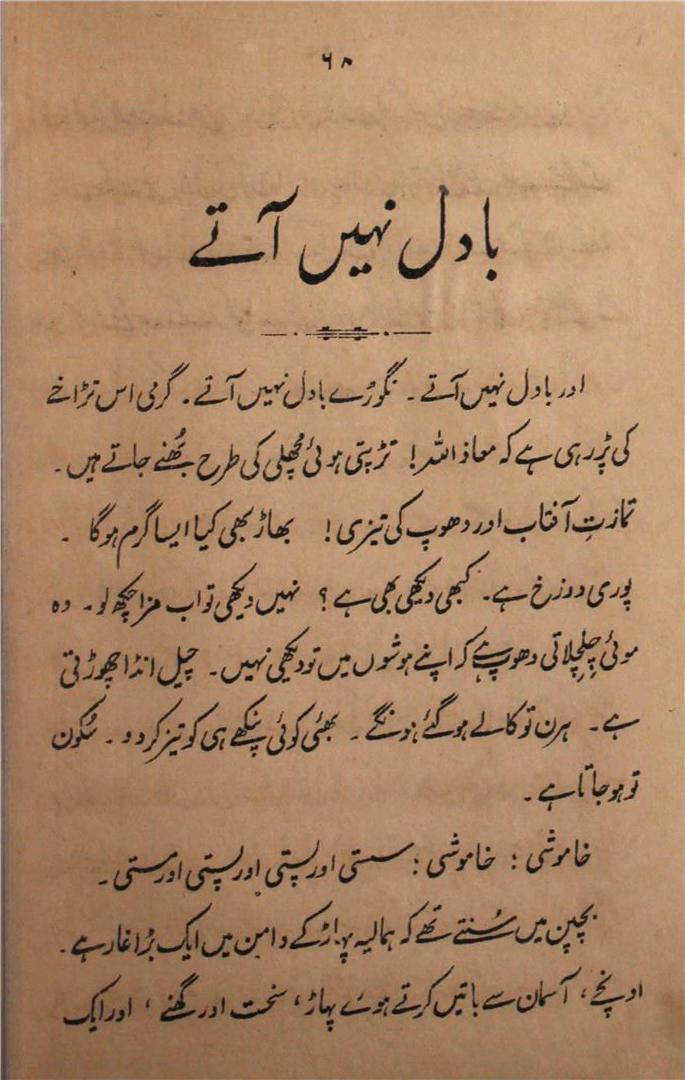 ۶۸
بادل نہیں آتے
اور بادل نہیں آتے۔ نگوڑے بادل نہیں آتے۔ گرمی اس تڑاخے
کی پڑ رہی ہے کہ معاذ اللہ! تڑپتی ہوئی مچھلی کی طرح بُھنے جاتے ہیں۔
تمازتِ آفتاب اور دھوپ کی تیزی! بھاڑ بھی کیا ایسا گرم ہوگا۔
پوری دوزخ ہے۔ کبھی دیکھی بھی ہے؟ نہیں دیکھی تو اب مزا چکھ لو۔ وہ
موئی چِلچِلاتی دھوپ ہے کہ اپنے ہوشوں میں تو دیکھی نہیں۔ چیل انڈا چھوڑتی
ہے۔ ہرن تو کالے ہو گئے ہونگے۔ بھئی کوئی پنکھے ہی کو تیز کر دو۔ سُکون
تو ہو جاتا ہے۔
خاموشی؛ خاموشی؛ سستی اور پستی اور پستی اور مستی۔
بچپن میں سُنتے تھے کہ ہمالیہ پہاڑ کے دامن میں ایک بڑا غار ہے۔
اونچے، آسمان سے باتیں کرتے ہوے پہاڑ، سخت اور گھنے، اور ایک